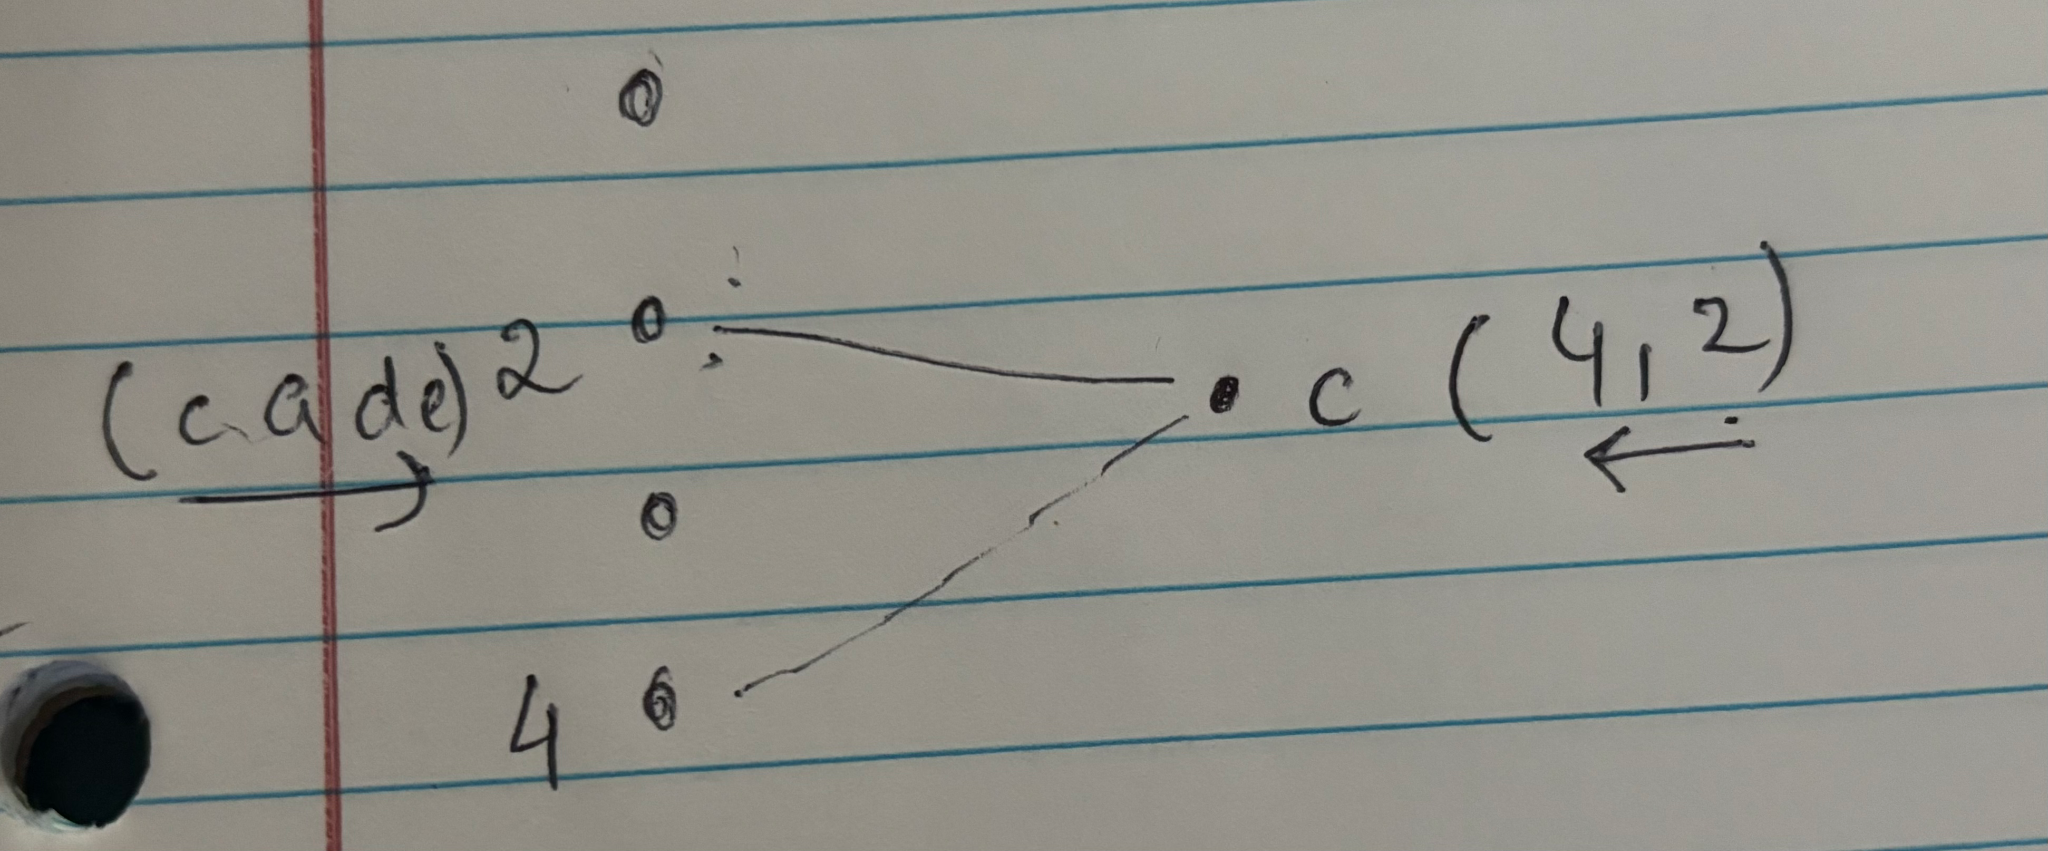 (c a d e) 2 c (4, 2)
4